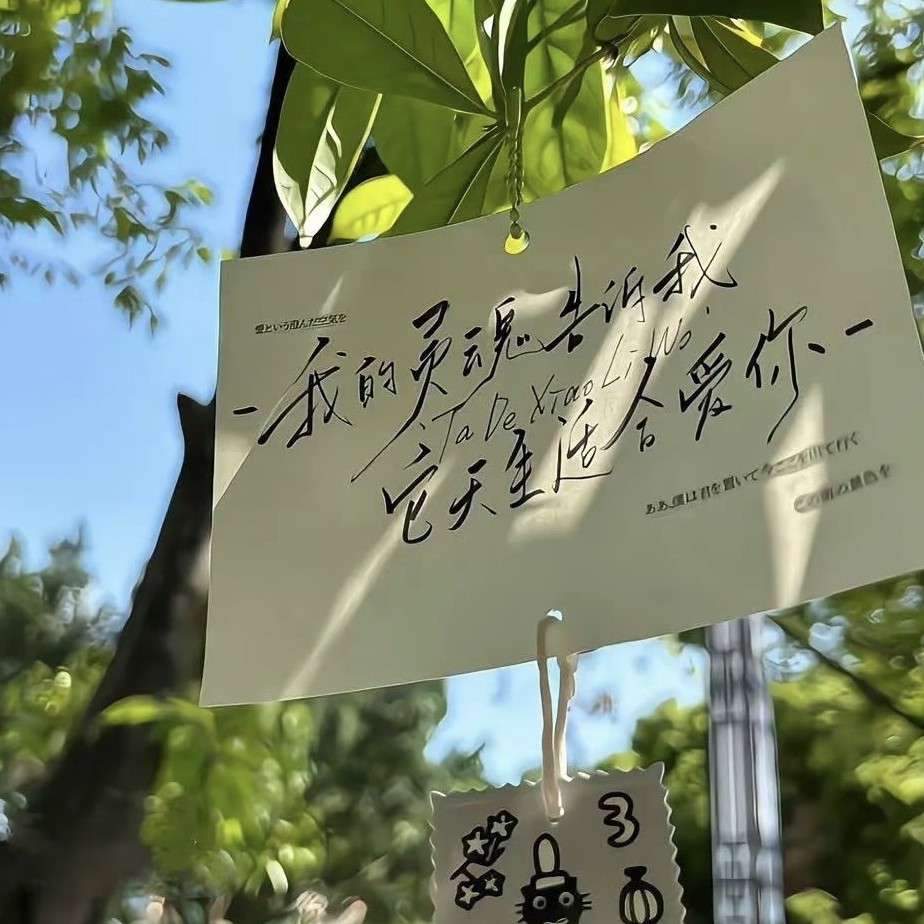 愛という澄んだ空気を
-我的灵魂告诉我
Ta De Xiao Li Wo
它天生适合爱你-
ああ、僕は君を置いて今ここを出て行く
この街の景色を
3